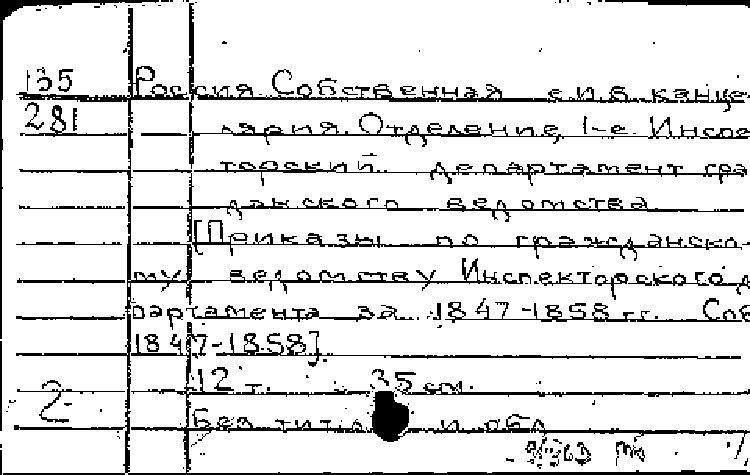 135 Россия. Собственная е.и.в. канце-
281 лярия. Отделение, 1-е. Инспе
торский департамент гра
данского ведомства
[Приказы по гражданско-
му ведомству Инспекторского д
партамента за 1847-1858 гг. Спб
1847-1858].
12 т. 35 см.
2 Без тит. и обл